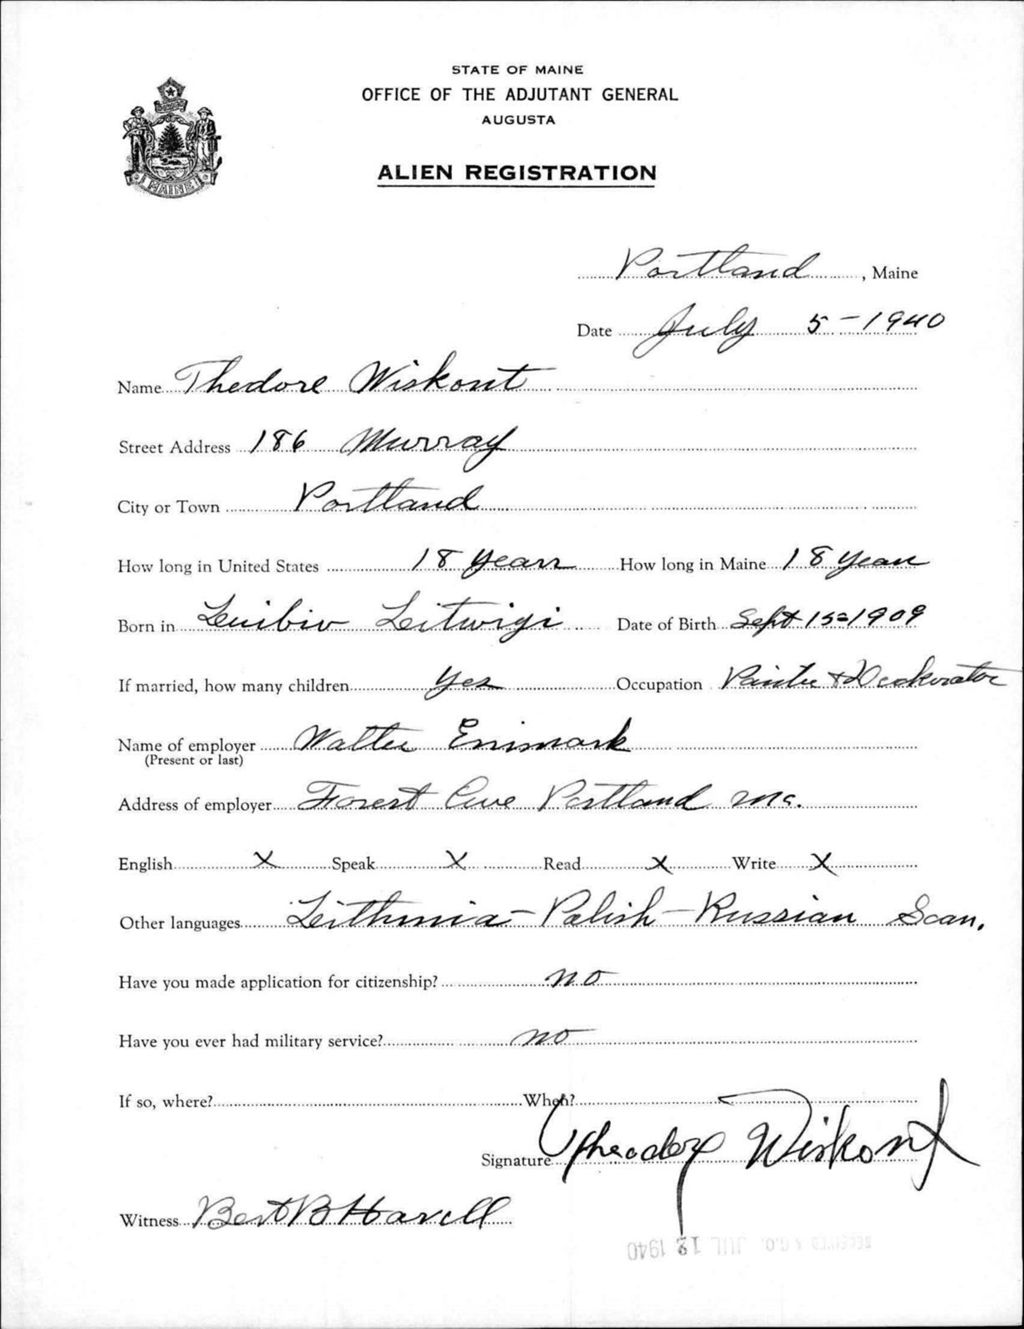 STATE OF MAINE
OFFICE OF THE ADJUTANT GENERAL
AUGUSTA
ALIEN REGISTRATION
MAINE
Portland, Maine
Date July 5-1940
Name Thedore Wiskont
Street Address 186 Murray
City or Town Portland
How long in United States 18 years How long in Maine 18 years
Born in Litwigi Date of Birth Sept 15=1909
If married, how many children Yes Occupation Painter & Deckorator
Name of employer Walter Enimark
(Present or last)
Address of employer Forest Ave Portland Me.
English X Speak X Read X Write X
Other languages Leithmia- Polish- Russian Scan.
Have you made application for citizenship? no
Have you ever had military service? no
If so, where? When?
Signature Theodore Wiskont
Witness Bert B Havell
RECEIVED A.G.O. JUL 12 1940